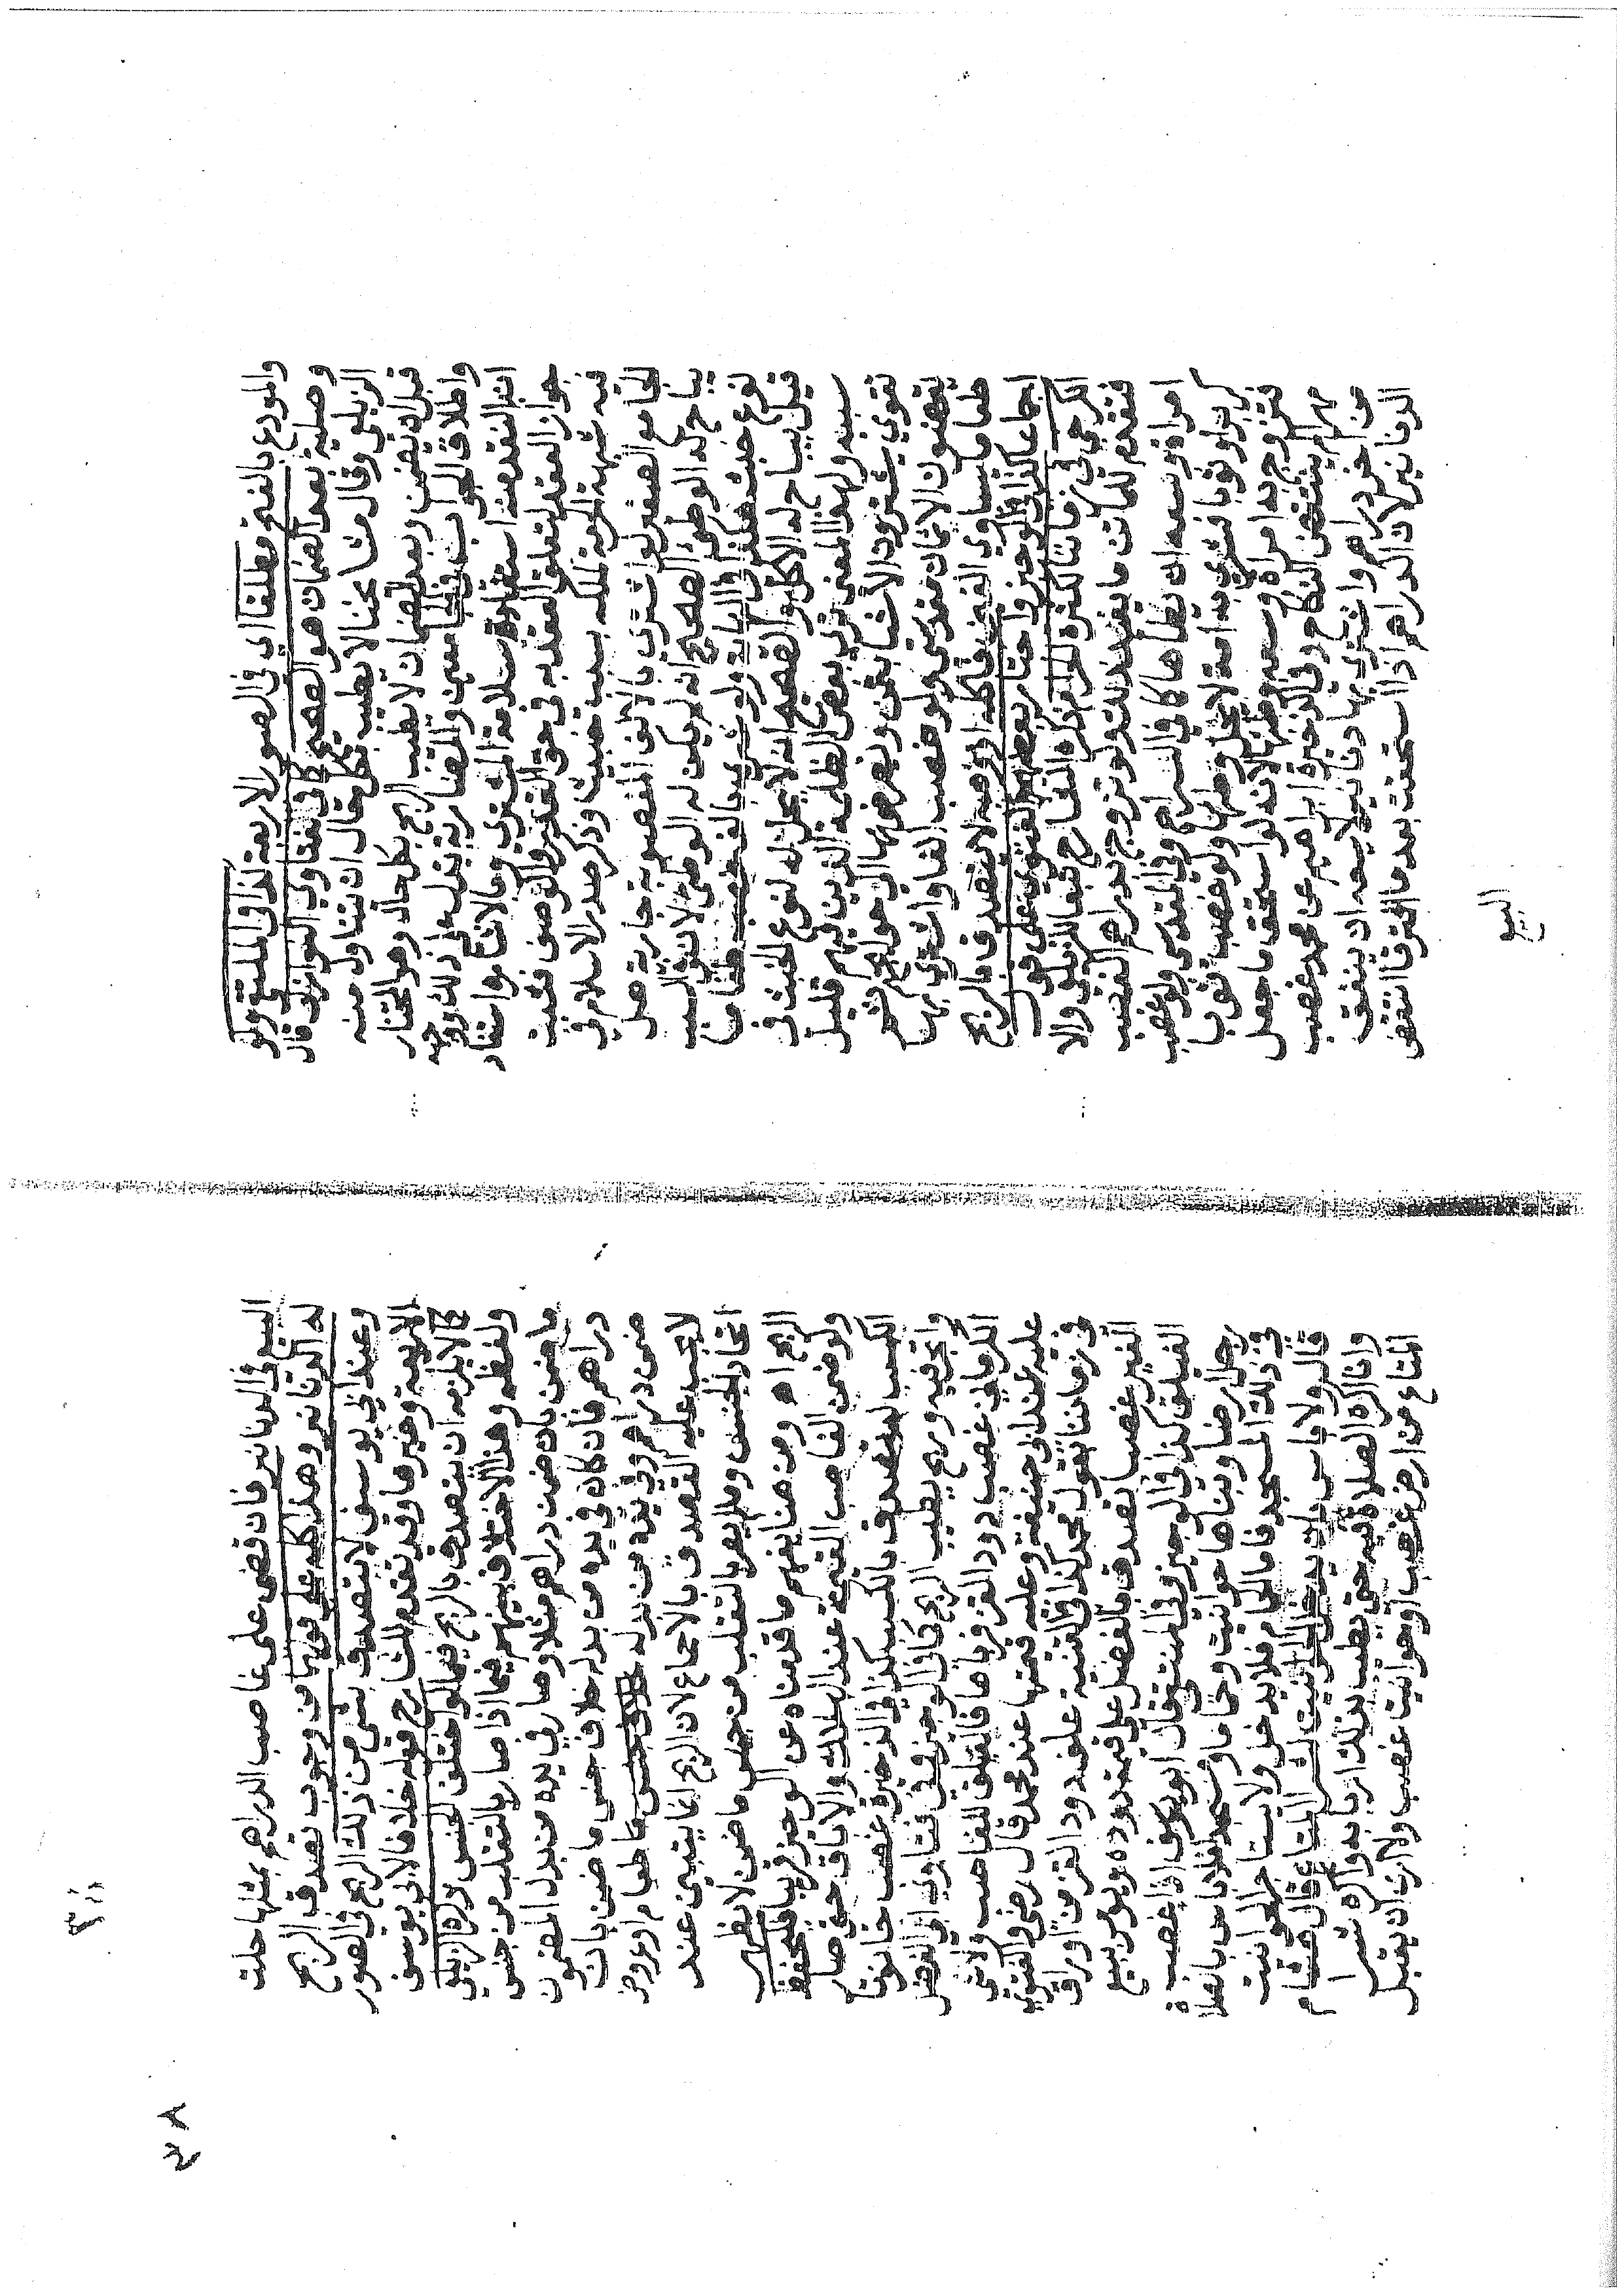 والمودع بالفتح مطلقا اي في الصور الاربعة كذا في الملتقى ولو
وصلية بعد الضمان هو الصحيح كما في فتاوي النوازل قال
الزيلعي وقال مشايخنا لا يطيب بكل حال ان يتناول منه
قبل ان يضمن وبعد الضمان لا يطيب الربح بكل حال وهو المختار
واطلاق الجواب في الجامعين والمضاربة يدل على ذلك ووجهه
انه بالنقد منه استفاد سلامة المشتري وبالاشارة استفاد
جواز العقد لتعلق العقد به في حق القدر والوصف فيثبت
فيه شبهة الحرمة لملكه بسبب خبيث وذكر صدر الاسلام في
الجامع الصغير لو اشترى بالالف المغصوبة جارية هل
يباح له الوطئ الصحيح انه لم يكن له الوطئ لان في السبب
نوع خبث هكذا في النهاية ولو شرى بالف غصب طعاما
قيل يباح له الاكل والصحيح انه لا يحل له لنوع الخبث في
سببه ولهذا المعنى ترى بعض الظلمة الذين فيهم قليل
تقوي يشترون الاشيا بثمن ويعرضونها الي حوايجهم ثم
يقضون الاثمان من ولو غصب الفا واشترى بها
طعاما يساوي الفين فاكله او وهبه لا يتصدق بالربح
اجماعا كذا في الوجيز واختار بعضهم الفتوى على قول
الكرخي في زماننا لكثرة الحرام ذكره الشارح تبعا للزيلعي والا
فتقدم للماتن ما يفيد ذلك ولو تزوج بدراهم الغصب
امراة وسعه ان يطاها كما في السراج وفي المقدسي ولو غصب
كر بر او ثوبا فشرى به امة لا يحل وطئها ولو غصب ثوبا
فتزوج به امراة وسعه وطئها لانه لو استحق ما جعل
مهرا لم ينتقض النكاح وفي الذخيرة ابراهيم عن محمد غصب
من اخر دراهم واشترى بها دنانير لا يسعه ان ينفق
الدنانير لان الدراهم اذا استحقت بعدما افترقا انتقض
البيع
البيع في الدنانير فان قضى على غاصب الدراهم بمثلها حلت
له الدنانير وهذا كله على قولهما من وجوب تصدق الربح
وعند ابي يوسف لا يتصدق بشي من ذلك الربح في الصور
الاربعة وغيرها وقد تقدم للشارح قوله خلافا لابي يوسف
كما لا يلزمه ان يتصدق بالربح فيما لو اختلف الجنس ذكره الزيلعي
ولفظه وهذا الاختلاف بينهم فيما اذا صار بالتقلب من جنس
ما ضمن بان ضمن دراهم مثلا وصار في يده من بدل المضمون
دراهم فان كان في يده من بدله خلاف جنس ما ضمن بان
ضمن دراهم وفي يده من بدله طعام او عروض
لا يجب عليه التصدق بالاجماع لان الربح انما يتبين عند
اتحاد الجنس وما لم يصر بالتقلب من جنس ما ضمن لا يظهر
الربح اه ومن هنا يفهم ما قدمناه عن الوجيز قريبا فليحفظ
ولو ضمن الغاصب القيمة عند الهلاك والاباق حتى صار
الكسب له تصدق بالكسب كذا في الذخيرة غصب حانوتا
واتجر فيه وربح يطيب الربح كما في الوجيز وفي فتاوي ابي الفضل
الكرماني غصب دود القز فرباها فالفيلق للغاصب ولا شي
عليه عند ابي حنيفة وعليه قيمتها عند محمد قال رضي والفتوى
في زماننا بقول محمد كذا في القنية علف دود القز من اوراق
الغير غصبا تصدق بالفضل على قيمة دوده ويوم بيع
الفيلق كذا في الوجيز وفي المنتقى قال ابو يوسف اذا غصب
رجل ارضا وبناها حوانيت وحماما ومسجدا فلا باس بالصلاة
في ذلك المسجد فاما الحمام فلا يدخل ولا يستاجر الحوانيت
قال ولا باس بان يدخل الحوانيت لشرا المتاع قال هشام
وانا اكره الصلاة فيه حتى يطيب بذلك اربابه واكره شرا
المتاع من ارض غصب او حوانيت غصب ولا ارى ان يقبل
٤٨